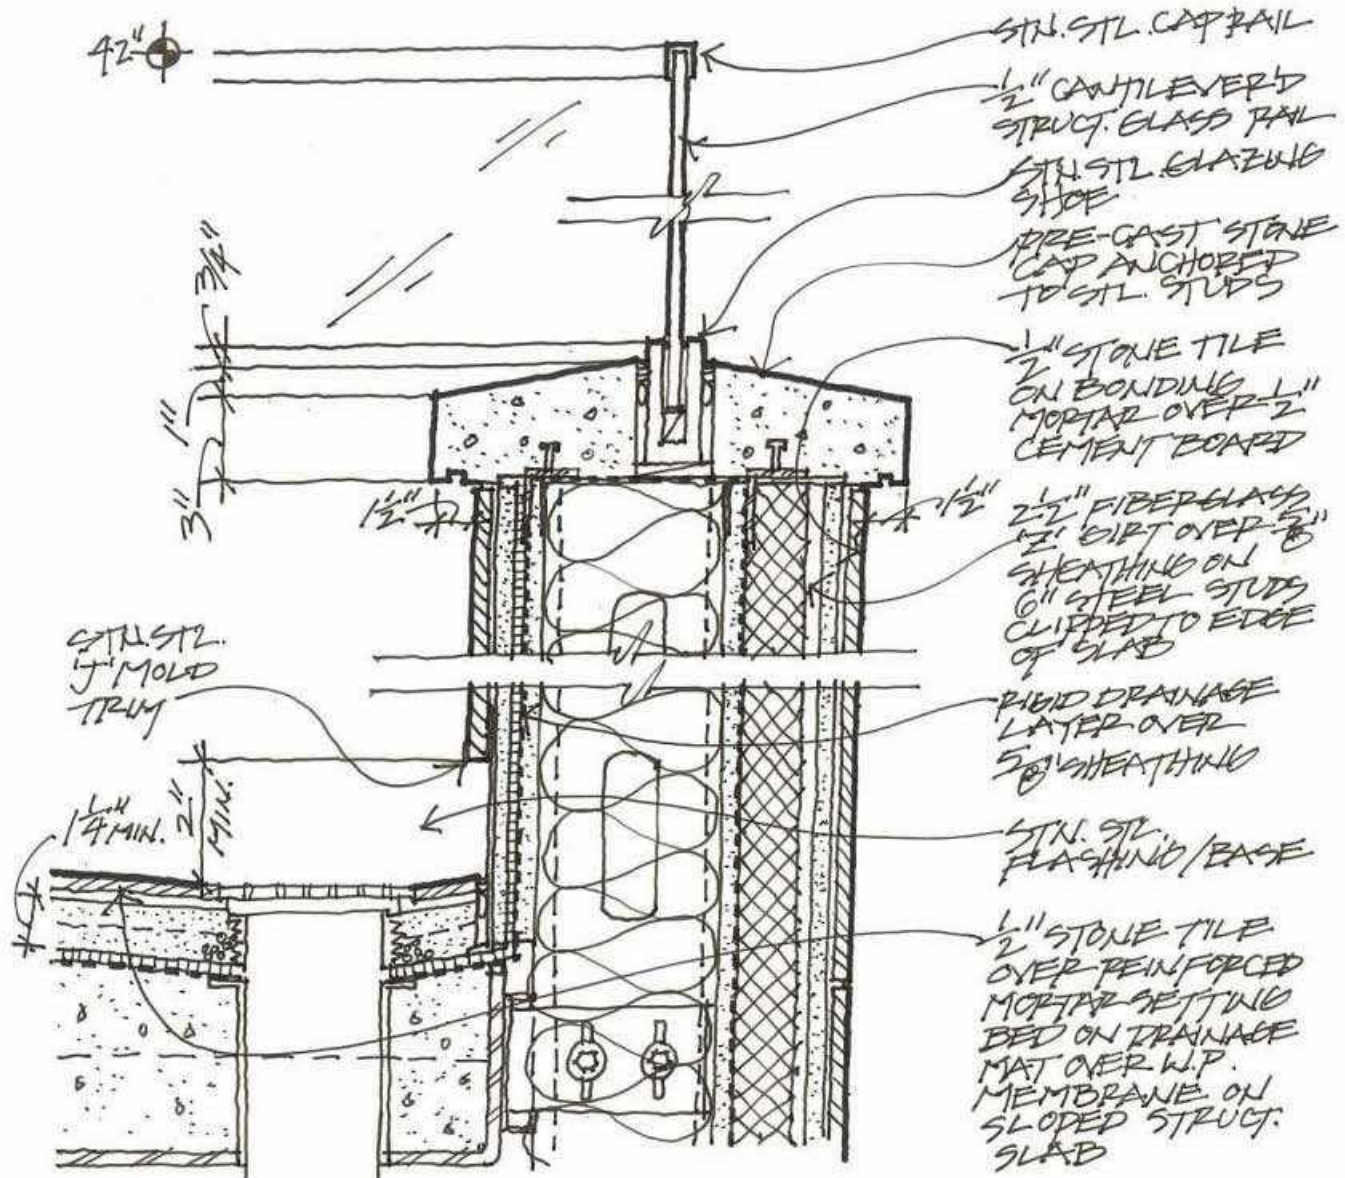 42"
STN. STL. CAP RAIL
1/2" CANTILEVER'D
STRUCT. GLASS RAIL
STN. STL. GLAZING
SHOE
PRE-CAST STONE
CAP ANCHORED
TO STL. STUDS
1/2" STONE TILE
ON BONDING
MORTAR OVER 1/2"
CEMENT BOARD
2 1/2" FIBERGLASS
'Z' GIRT OVER 5/8"
SHEATHING ON
6" STEEL STUDS
CLIPPED TO EDGE
OF SLAB
RIGID DRAINAGE
LAYER OVER
5/8" SHEATHING
STN. STL.
FLASHING/BASE
1/2" STONE TILE
OVER REINFORCED
MORTAR SETTING
BED ON DRAINAGE
MAT OVER W.P.
MEMBRANE ON
SLOPED STRUCT.
SLAB
3/4"
1"
3"
1 1/2"
1 1/2"
STN. STL.
'J' MOLD
TRIM
2"
MIN.
1 1/4" MIN.